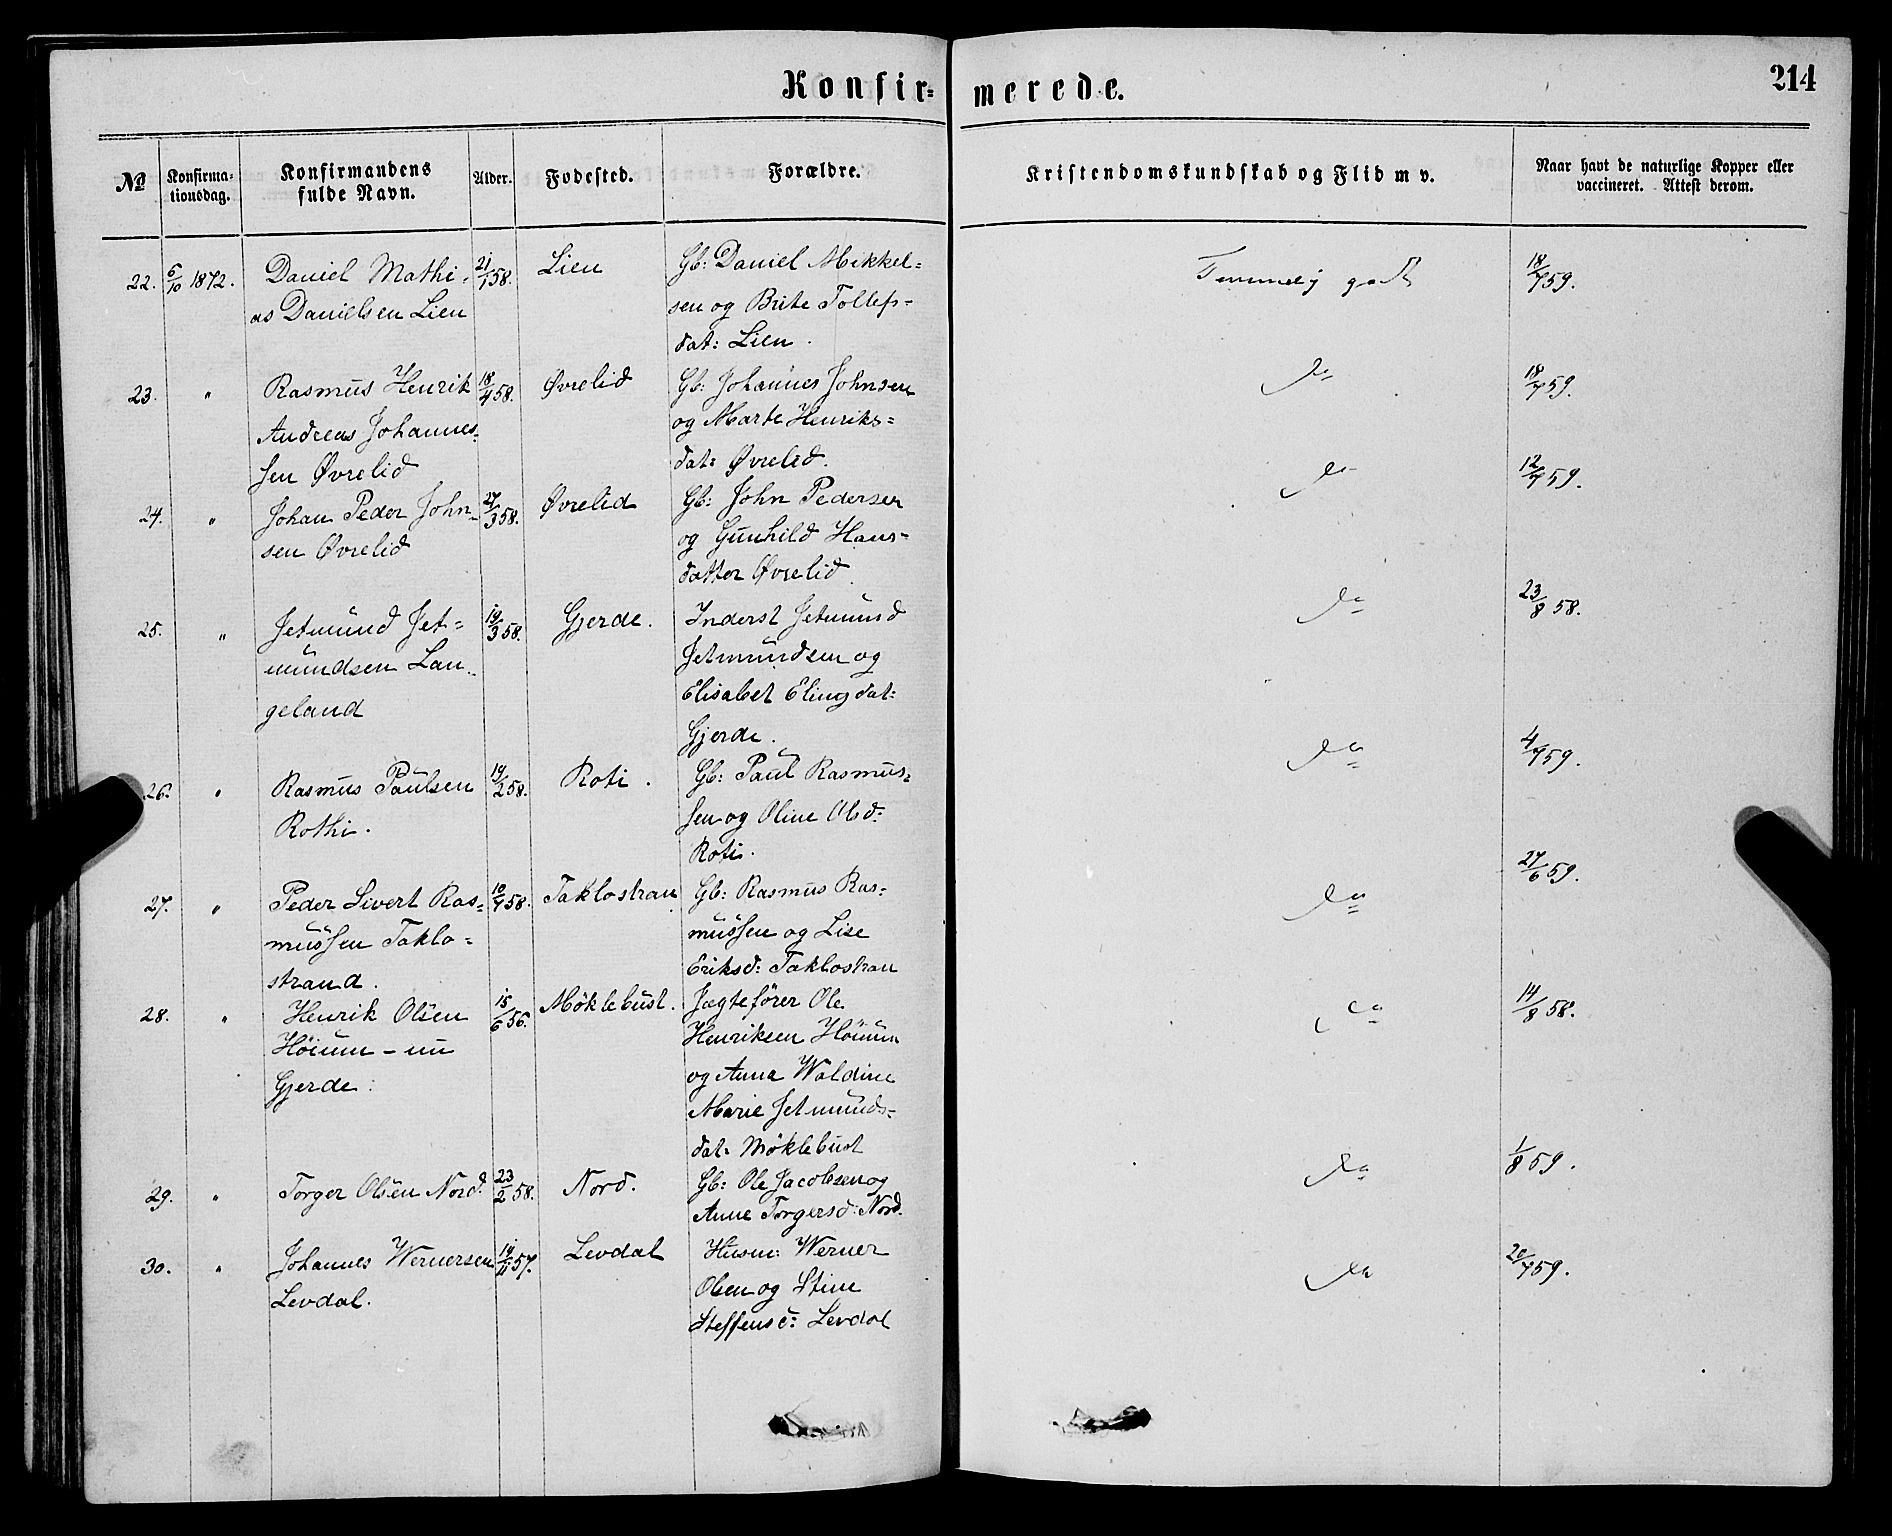 Konfir=
merede.
214
No
Konfirma-
tionsdag.
Konfirmandens
fulde Navn.
Alder.
Fødested.
Forældre.
Kristendomskundskab og Flid m v.
Naar havt de naturlige Kopper eller
vaccineret. Attest derom.
22. 6/10 1872. Daniel Mathi- 21/1 58. Lien Gb: Daniel Mikkel= Temmelig godt 18/7 59.
as Danielsen Lien sen og Brite Tollefs-
dat: Lien.
23. " Rasmus Henrik 18/4 58. Øvrelid Gb: Johannes Johnsen Do 18/7 59.
Andreas Johannes- og Marte Henriks=
sen Øvrelid dat: Øvrelid.
24. " Johan Peder John- 27/3 58. Øvrelid Gb: John Pedersen Do 12/7 59.
sen Øvrelid og Gunhild Hans-
datter Øvrelid.
25. " Jetmund Jet= 19/3 58. Gjerde. Inderst Jetmund Do 23/8 58.
mundsen Lan- Jetmundsen og
geland Elisabet Elingsdat:
Gjerde.
26. " Rasmus Paulsen 19/2 58. Roti. Gb: Paul Rasmus- Do 4/7 59.
Rothi. sen og Oline Olsd:
Roti.
27. " Peder Sivert Ras= 10/7 58. Taklostran Gb: Rasmus Ras- Do 27/6 59.
mussen Taklo= mussen og Lise
strand. Eriksd: Taklostran
28. " Henrik Olsen 15/6 56. Møklebust. Jægtefører Ole Do 14/8 58.
Høium - nu Henriksen Høium
Gjerde: og Anna Waldine
Marie Jetmunds-
dat: Møklebust
29. " Torger Olsen Nord. 23/2 58. Nord. Gb: Ole Jacobsen og Do 1/8 59.
Anne Torgersd: Nord.
30. " Johannes Wernersen 19/11 57. Levdal Husm: Werner Do 20/7 59.
Levdal. Olsen og Stine
Steffensd: Levdal